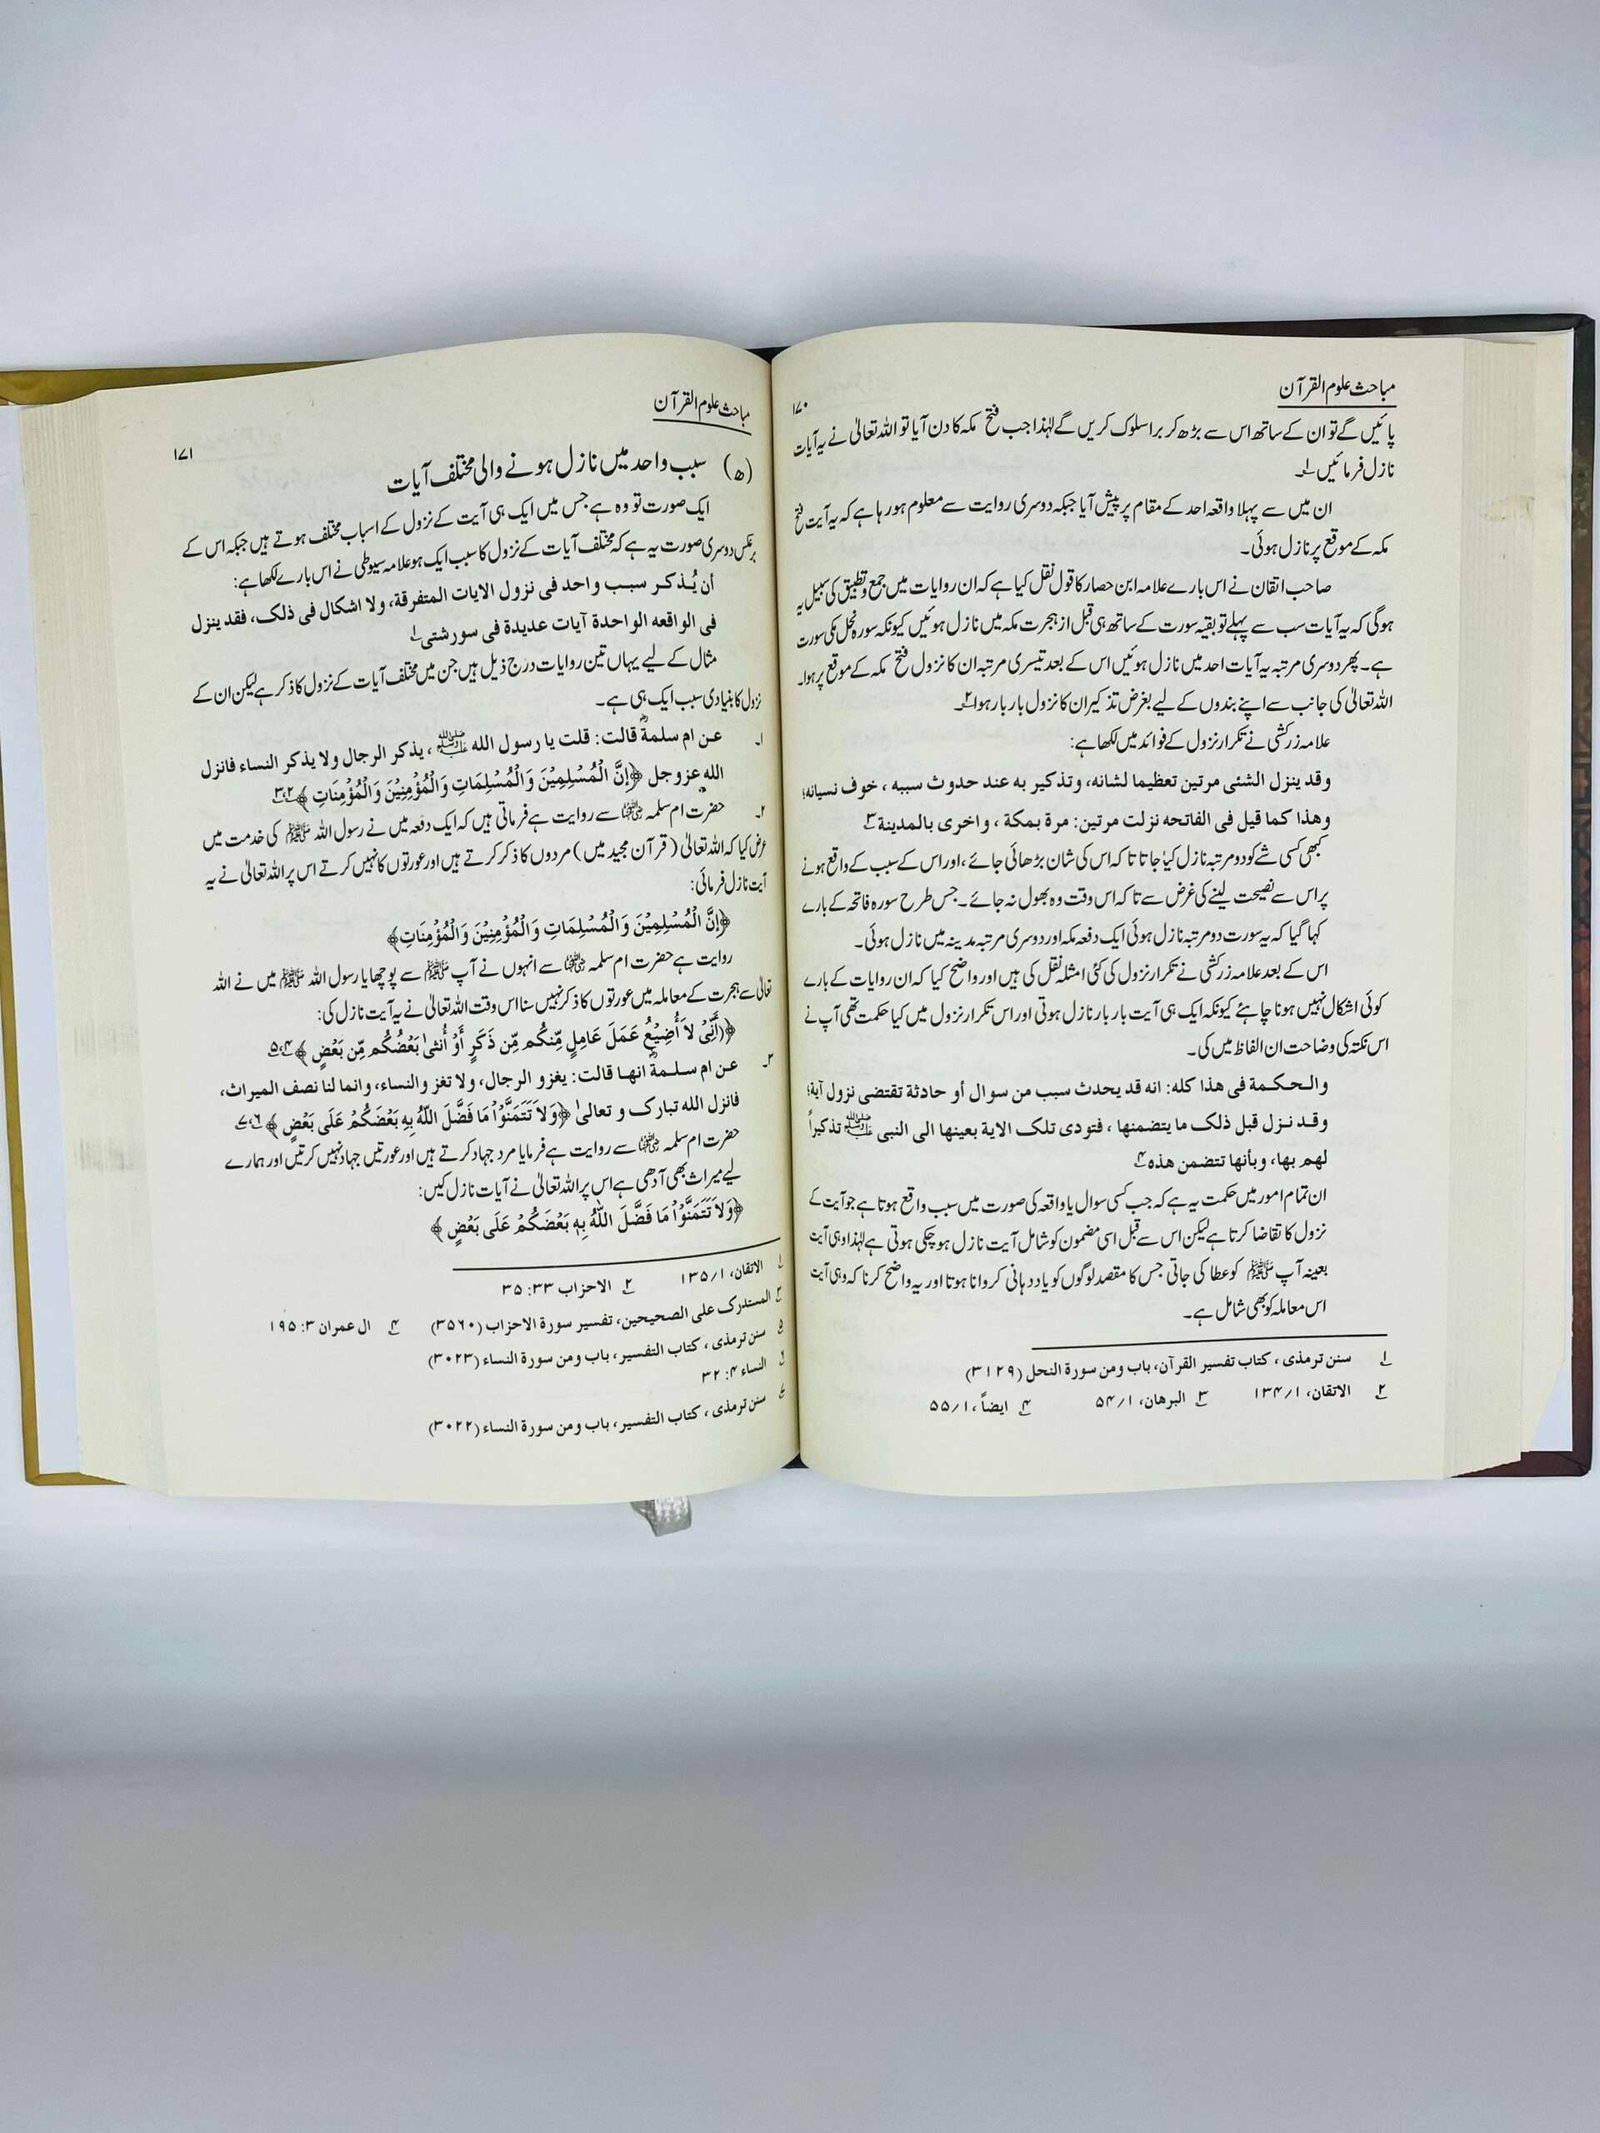 مباحث علوم القرآن
۱۷۰
پائیں گے تو ان کے ساتھ اس سے بڑھ کر برا سلوک کریں گے لہٰذا جب فتح مکہ کا دن آیا تو اللہ تعالیٰ نے یہ آیات
نازل فرمائیں ۱
ان میں سے پہلا واقعہ احد کے مقام پر پیش آیا جبکہ دوسری روایت سے معلوم ہو رہا ہے کہ یہ آیت فتح
مکہ کے موقع پر نازل ہوئی۔
صاحب اتقان نے اس بارے علامہ ابن حصار کا قول نقل کیا ہے کہ ان روایات میں جمع و تطبیق کی سبیل یہ
ہوگی کہ یہ آیات سب سے پہلے تو بقیہ سورت کے ساتھ ہی قبل از ہجرت مکہ میں نازل ہوئیں کیونکہ سورہ نحل مکی سورت
ہے۔ پھر دوسری مرتبہ یہ آیات احد میں نازل ہوئیں اس کے بعد تیسری مرتبہ ان کا نزول فتح مکہ کے موقع پر ہوا۔
اللہ تعالیٰ کی جانب سے اپنے بندوں کے لیے بغرض تذکیر ان کا نزول بار بار ہوا ۲
علامہ زرکشی نے تکرار نزول کے فوائد میں لکھا ہے:
وقد ينزل الشئى مرتين تعظيما لشانه، وتذكير به عند حدوث سببه ، خوف نسيانه؛
وهذا كما قيل فى الفاتحه نزلت مرتين: مرة بمكة ، واخرى بالمدينة ۳
کبھی کسی شے کو دو مرتبہ نازل کیا جاتا تا کہ اس کی شان بڑھائی جائے ، اور اس کے سبب کے واقع ہونے
پر اس سے نصیحت لینے کی غرض سے تا کہ اس وقت وہ بھول نہ جائے۔ جس طرح سورہ فاتحہ کے بارے
کہا گیا کہ یہ سورت دو مرتبہ نازل ہوئی ایک دفعہ مکہ اور دوسری مرتبہ مدینہ میں نازل ہوئی۔
اس کے بعد علامہ زرکشی نے تکرار نزول کی کئی امثلہ نقل کی ہیں اور واضح کیا کہ ان روایات کے بارے
کوئی اشکال نہیں ہونا چاہئے کیونکہ ایک ہی آیت بار بار نازل ہوتی اور اس تکرار نزول میں کیا حکمت تھی آپ نے
اس نکتہ کی وضاحت ان الفاظ میں کی۔
والحكمة فى هذا كله: انه قد يحدث سبب من سوال أو حادثة تقتضى نزول آية؛
وقد نزل قبل ذلك ما يتضمنها ، فتودى تلك الاية بعينها الى النبى ﷺ تذكيراً
لهم بها، وبأنها تتضمن هذه ۴
ان تمام امور میں حکمت یہ ہے کہ جب کسی سوال یا واقعہ کی صورت میں سبب واقع ہوتا ہے جو آیت کے
نزول کا تقاضا کرتا ہے لیکن اس سے قبل اسی مضمون کو شامل آیت نازل ہو چکی ہوتی ہے لہٰذا وہی آیت
بعینہ آپ ﷺ کو عطا کی جاتی جس کا مقصد لوگوں کو یاد دہانی کروانا ہوتا اور یہ واضح کرنا کہ وہی آیت
اس معاملہ کو بھی شامل ہے۔
۱ سنن ترمذى ، كتاب تفسير القرآن، باب ومن سورة النحل (۳۱۲۹)
۲ الاتقان، ۱/۱۳۴ ۳ البرهان، ۱/۵۴ ۴ ايضاً ، ۱/۵۵
مباحث علوم القرآن
۱۷۱
(ھ) سبب واحد میں نازل ہونے والی مختلف آیات
ایک صورت تو وہ ہے جس میں ایک ہی آیت کے نزول کے اسباب مختلف ہوتے ہیں جبکہ اس کے
برعکس دوسری صورت یہ ہے کہ مختلف آیات کے نزول کا سبب ایک ہو علامہ سیوطی نے اس بارے لکھا ہے:
أن يُذكر سبب واحد فى نزول الايات المتفرقة، ولا اشكال فى ذلك، فقد ينزل
فى الواقعه الواحدة آيات عديدة فى سور شتى ۱
مثال کے لیے یہاں تین روایات درج ذیل ہیں جن میں مختلف آیات کے نزول کا ذکر ہے لیکن ان کے
نزول کا بنیادی سبب ایک ہی ہے۔
۱۔ عن ام سلمةؓ قالت: قلت يا رسول الله ﷺ ، يذكر الرجال ولا يذكر النساء فانزل
الله عزوجل ﴿إنَّ الْمُسْلِمِيْنَ وَالْمُسْلِمَاتِ وَالْمُؤْمِنِيْنَ وَالْمُؤْمِنَاتِ﴾ ۲،۳
۲۔ حضرت ام سلمہ ؓ سے روایت ہے فرماتی ہیں کہ ایک دفعہ میں نے رسول اللہ ﷺ کی خدمت میں
عرض کیا کہ اللہ تعالیٰ (قرآن مجید میں) مردوں کا ذکر کرتے ہیں اور عورتوں کا نہیں کرتے اس پر اللہ تعالیٰ نے یہ
آیت نازل فرمائی:
﴿إنَّ الْمُسْلِمِيْنَ وَالْمُسْلِمَاتِ وَالْمُؤْمِنِيْنَ وَالْمُؤْمِنَاتِ﴾
روایت ہے حضرت ام سلمہ ؓ سے انہوں نے آپ ﷺ سے پوچھا یا رسول اللہ ﷺ میں نے اللہ
تعالیٰ سے ہجرت کے معاملہ میں عورتوں کا ذکر نہیں سنا اس وقت اللہ تعالیٰ نے یہ آیت نازل کی:
﴿أَنِّىْ لاَ أُضِيْعُ عَمَلَ عَامِلٍ مِّنكُم مِّن ذَكَرٍ أَوْ أُنثىٰ بَعْضُكُم مِّن بَعْضٍ﴾ ۴،۵
۲۔ عن ام سلمةؓ انها قالت: يغزو الرجال، ولا تغز والنساء، وانما لنا نصف الميراث،
فانزل الله تبارك و تعالىٰ ﴿وَلاَ تَتَمَنَّوْا مَا فَضَّلَ اللّٰهُ بِهِ بَعْضَكُمْ عَلَى بَعْضٍ﴾ ۶،۷
حضرت ام سلمہ ؓ سے روایت ہے فرمایا مرد جہاد کرتے ہیں اور عورتیں جہاد نہیں کرتیں اور ہمارے
لیے میراث بھی آدھی ہے اس پر اللہ تعالیٰ نے آیات نازل کیں:
﴿وَلاَ تَتَمَنَّوْا مَا فَضَّلَ اللّٰهُ بِهِ بَعْضَكُمْ عَلَى بَعْضٍ﴾
۱ الاتقان، ۱/۱۳۵ ۲ الاحزاب ۳۳: ۳۵
۳ المستدرك على الصحيحين، تفسير سورة الاحزاب (۳۵۶۰) ۴ ال عمران ۳: ۱۹۵
۵ سنن ترمذى ، كتاب التفسير، باب ومن سورة النساء (۳۰۲۳)
۶ النساء ۴: ۳۲
۷ سنن ترمذى ، كتاب التفسير، باب ومن سورة النساء (۳۰۲۲)